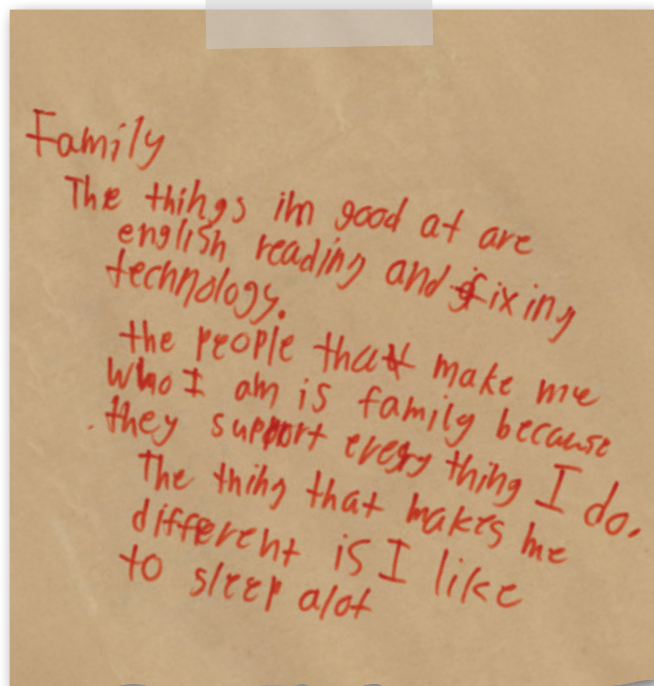 Family
The things im good at are
english reading and fixing
technology.
the people that make me
who I am is family because
they support every thing I do.
The thing that makes me
different is I like
to sleep alot